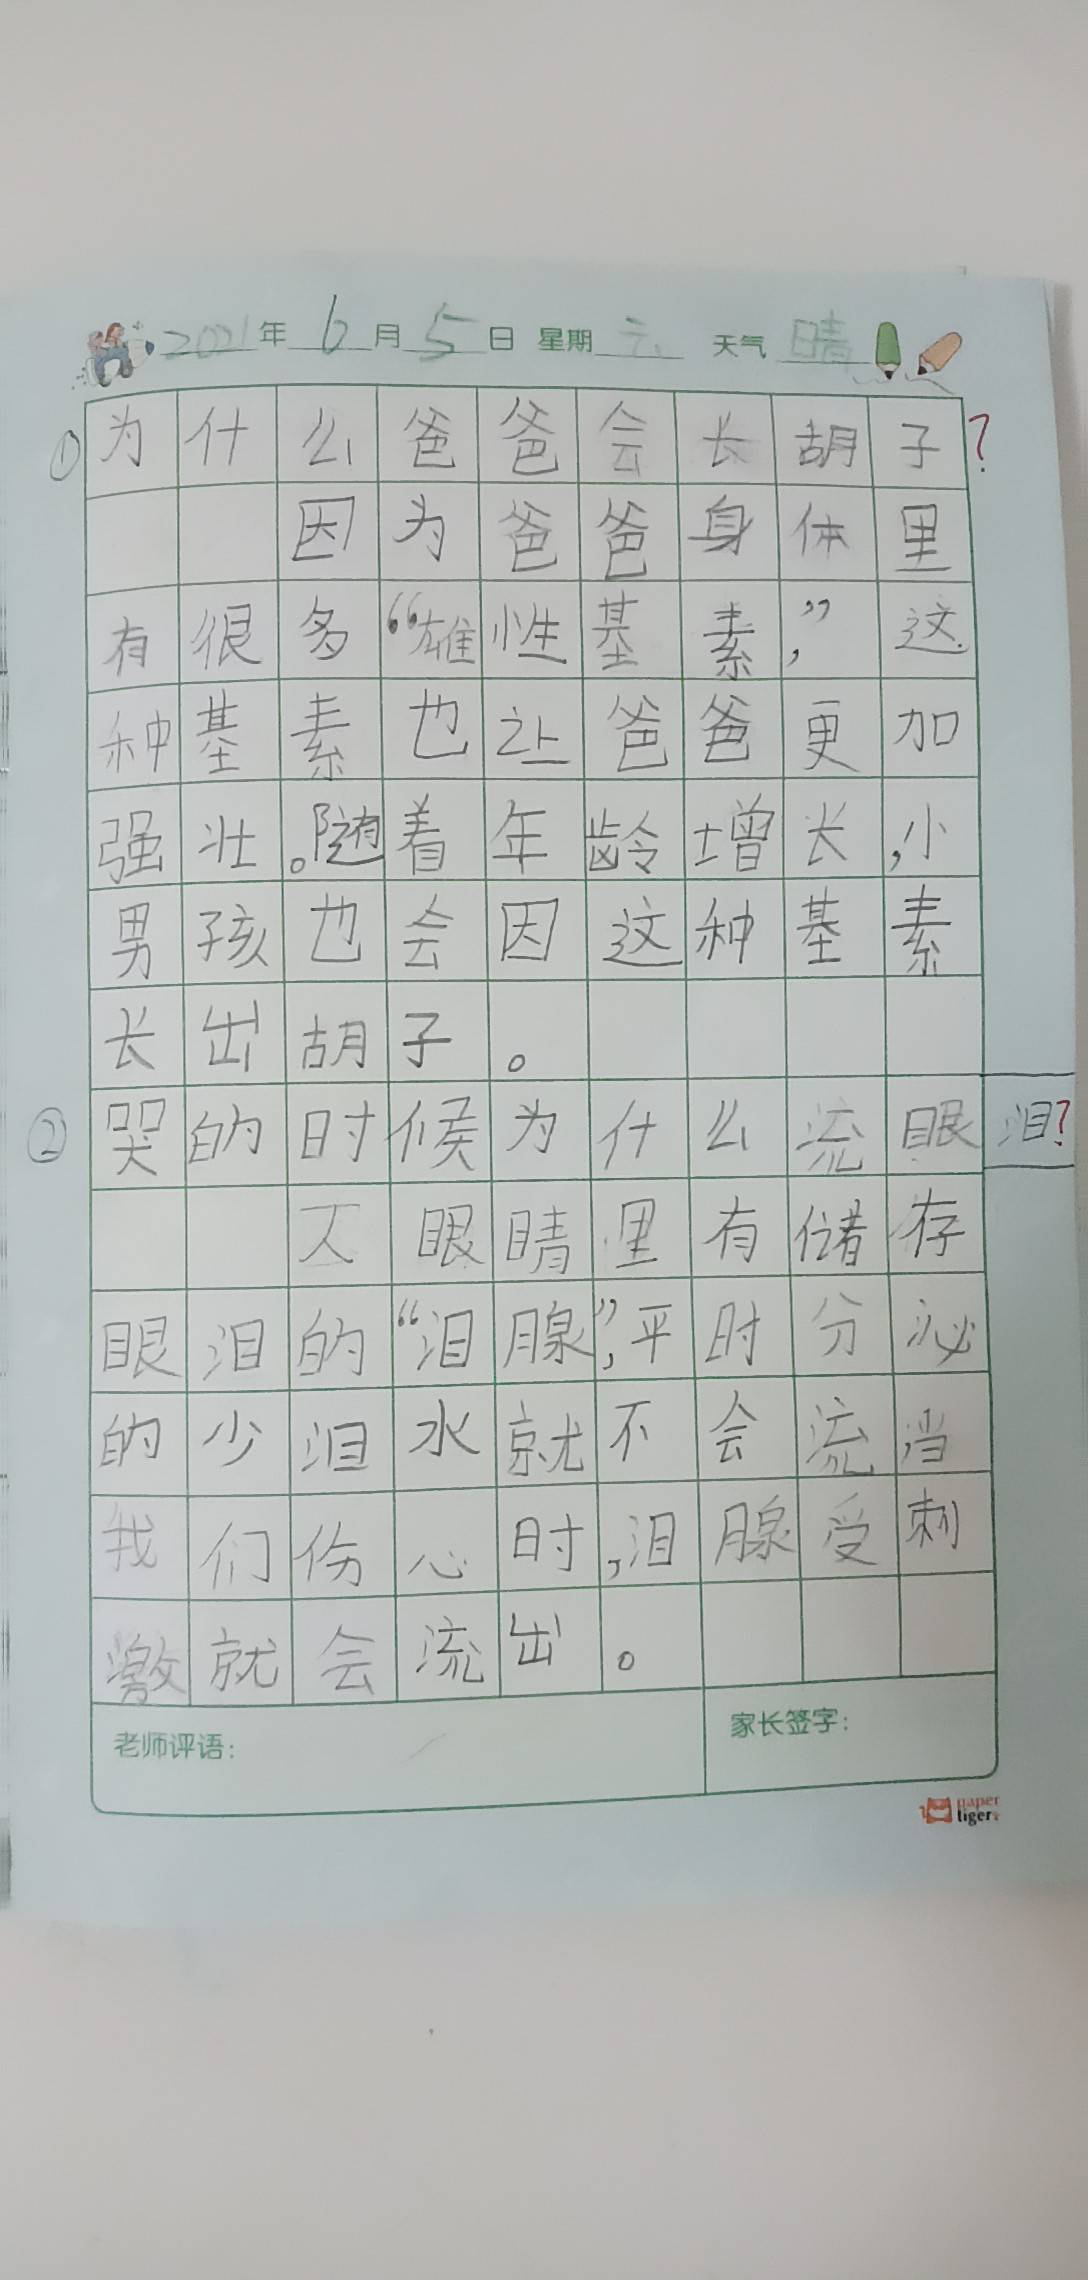 2021年6月5日 星期六 天气 晴
①为什么爸爸会长胡子?
因为爸爸身体里
有很多“雄性基素,”这
种基素也让爸爸更加
强壮。随着年龄增长,小
男孩也会因这种基素
长出胡子。
②哭的时候为什么流眼泪?
人眼睛里有储存
眼泪的“泪腺”,平时分泌
的少泪水就不会流当
我们伤心时,泪腺受刺
激就会流出。
老师评语: 家长签字:
paper
tiger